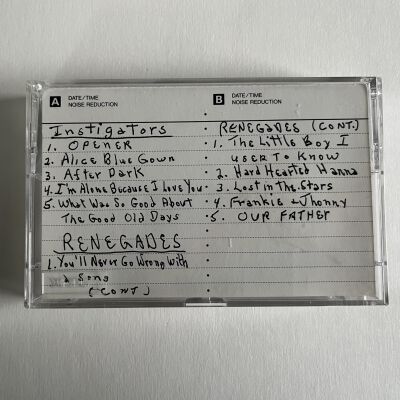 A DATE/TIME
NOISE REDUCTION
Instigators
1. OPENER
2. Alice Blue Gown
3. After Dark
4. I'm Alone Because I Love You
5. What Was So Good About
The Good Old Days
RENEGADES
1. You'll Never Go Wrong With
a Song
(CONT)
B DATE/TIME
NOISE REDUCTION
RENEGADES (CONT.)
1. The Little Boy I
used To Know
2. Hard Hearted Hanna
3. Lost in The Stars
4. Frankie + Jhonny
5. OUR FATHER